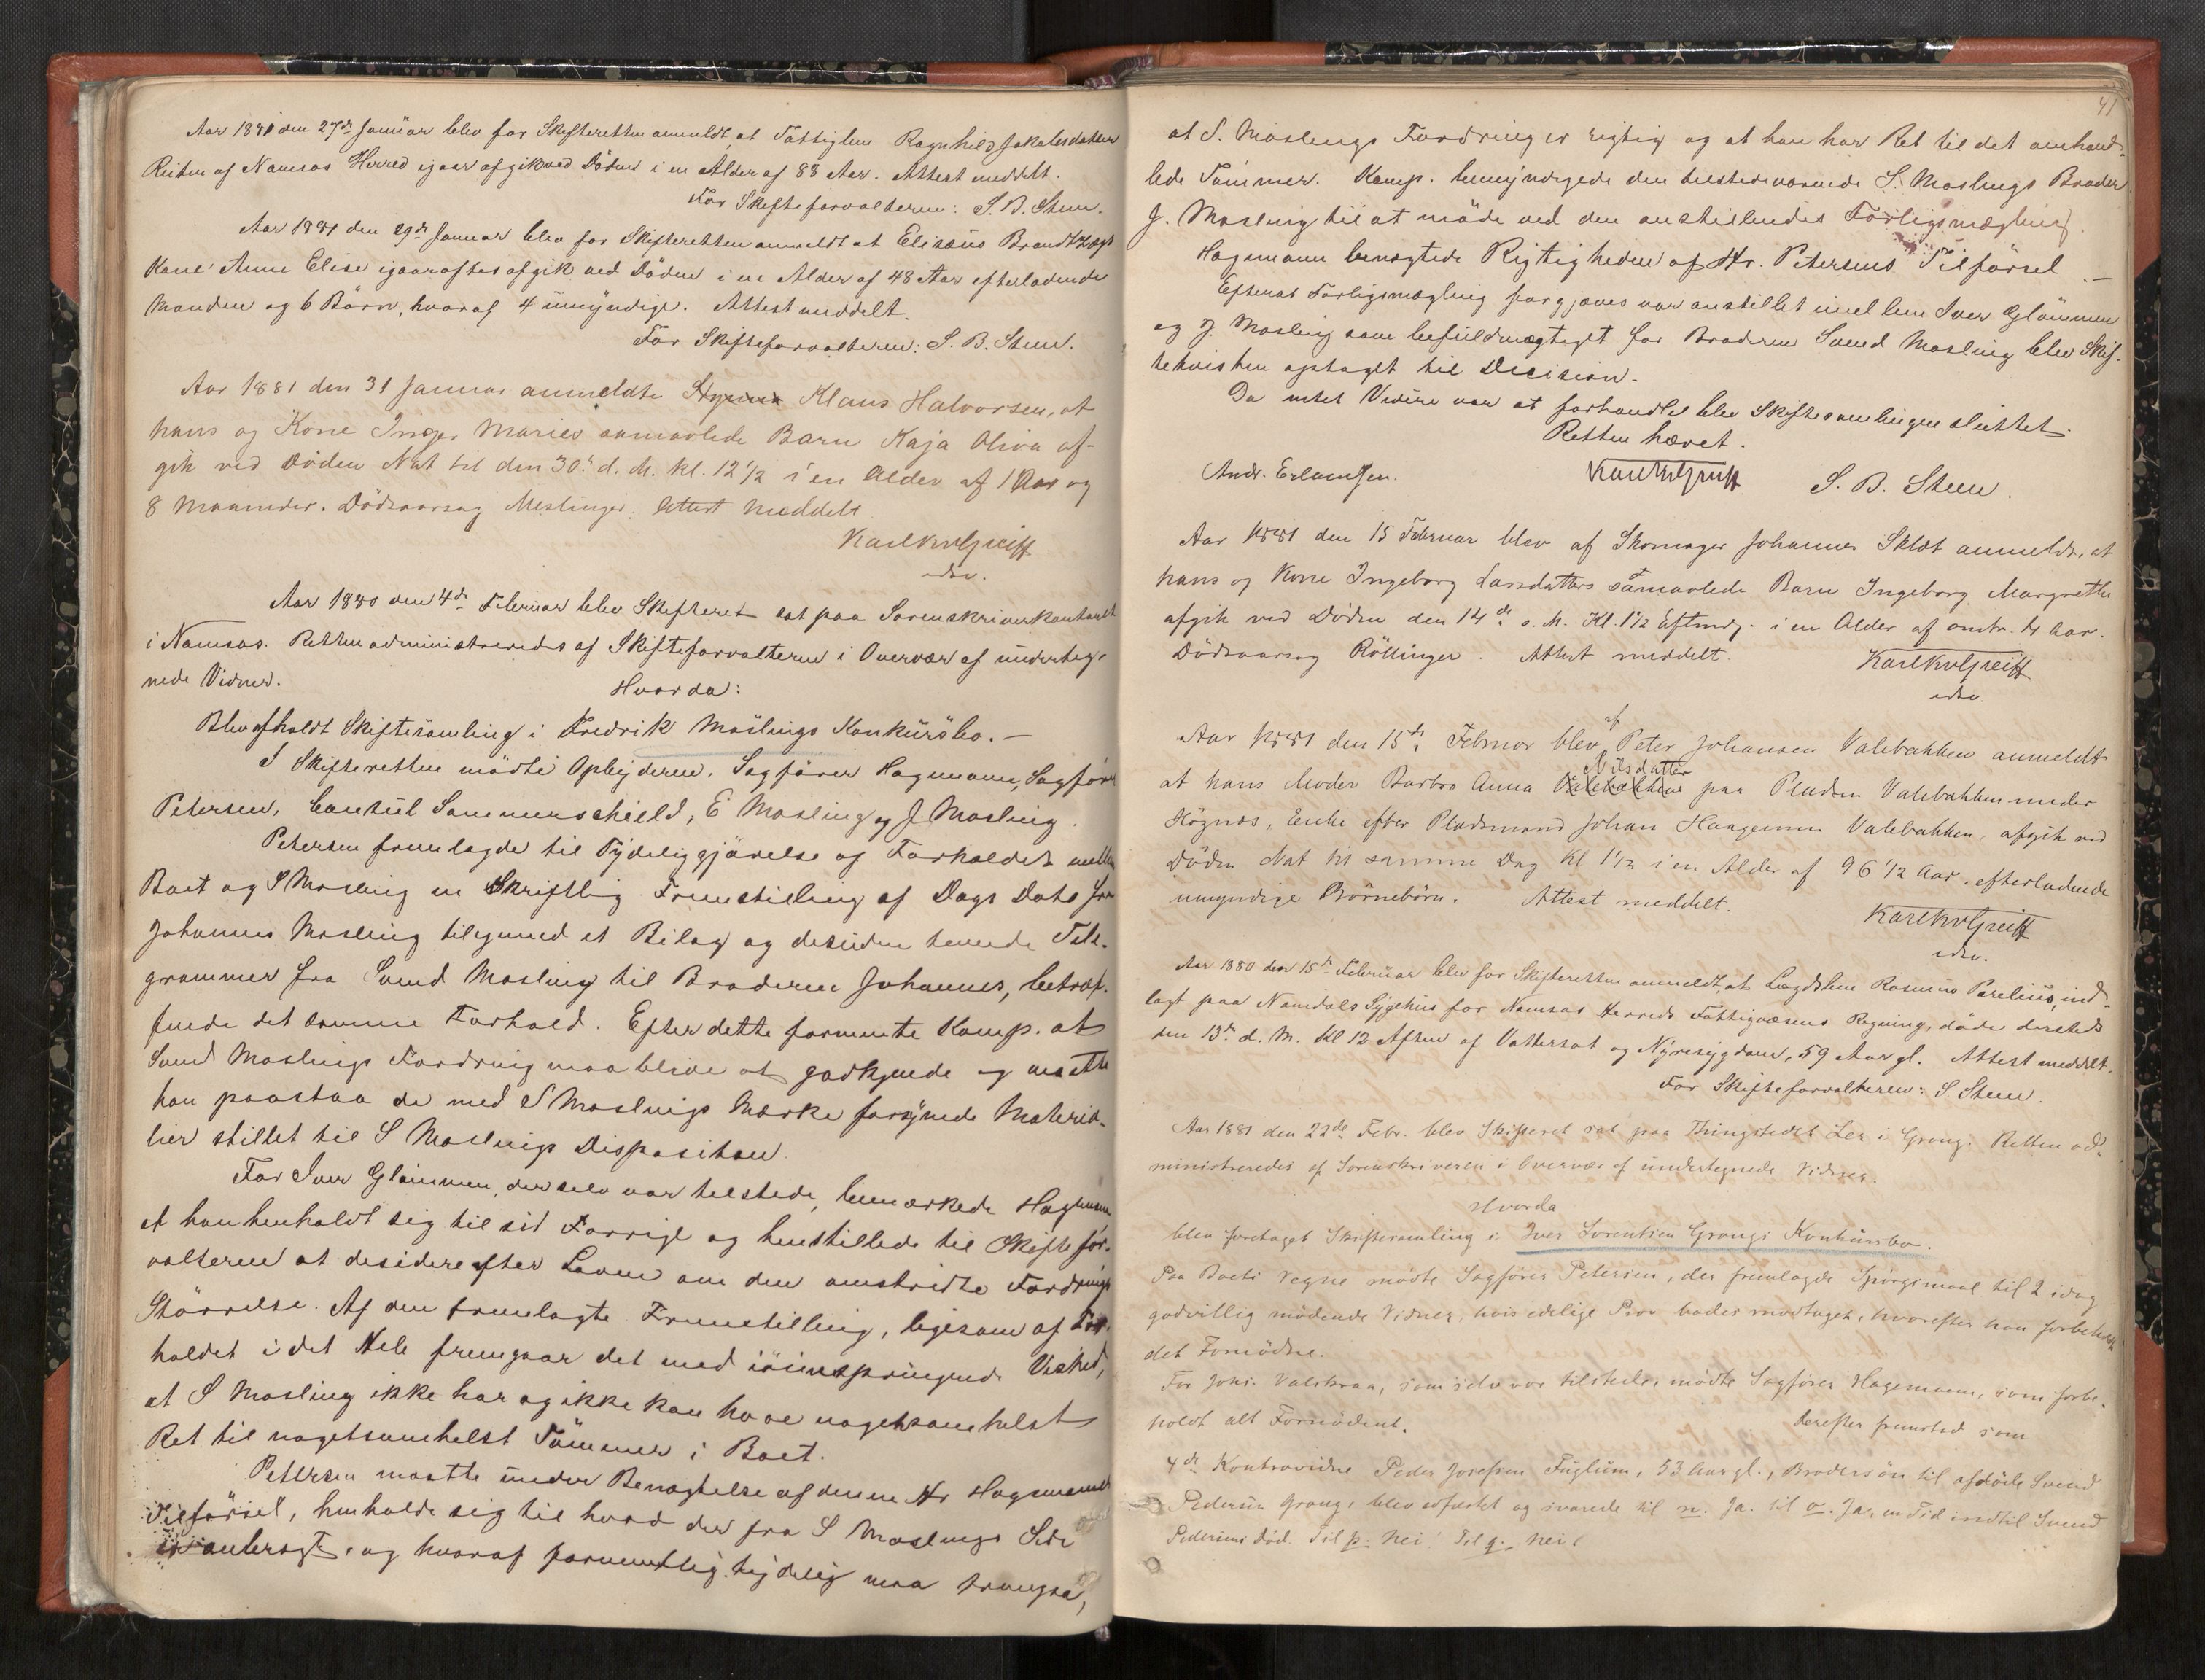 Aar 1881 den 27de Januar blev for Skifteretten anmeldt, at Fattiglem Ragnhild Jakobsdatter
Reiten af Namsos Herred igaar afgik ved Døden i en Alder af 88 Aar. Attest meddelt.
For Skifteforvalteren: S. B. Steen.
Aar 1881 den 29de Januar blev for Skifteretten anmeldt at Elisæus Brandtzægs
Kone Anne Elise igaaraftes afgik ved Døden i en Alder af 48 Aar efterladende
Manden og 6 Börn, hvoraf 4 umyndige. Attest meddelt.
For Skifteforvalteren: S. B. Steen.
Aar 1881 den 31 Januar anmeldte Klaus Halvorsen, at
hans og Kone Inger Maries samavlede Barn Kaja Oliva af-
gik ved Døden Nat til den 30. d. M. kl. 12 1/2 i en Alder af 1 Aar og
8 Maaneder. Dödsaarsag Meslinger. Attest meddelt.
Aar 1880 den 4de Februar blev Skifteret sat paa Sorenskriverkontoret
i Namsos. Retten administreredes af Skifteforvalteren i Overvær af underteg-
nede Vidner.
Hvorda:
Blev afholdt Skiftesamling i Fredrik Moslings Konkursbo. —
I Skifteretten mödte Opbyderen, Sagförer Hagemann, Sagförer
Petersen, Consul Sommerschield, E Mosling og J. Mosling.
Petersen fremlagde til Tydeliggjörelse af Forholdet mellem
Boet og S Mosling en Skriftlig Fremstilling af Dags Dato fra
Johannes Mosling tilligemed et Bilag og desuden tvende Tele-
grammer fra Svend Mosling til Broderen Johannes, betræf-
fende det samme Forhold. Efter dette formente Komp. at
Svend Moslings Fordring maa blive at godkjende og maatte
han paastaa de med S Moslings Mærke forsynede Materia-
lier stillet til S Moslings Disposition.
For Iver Glömmen, der selv var tilstede, bemærkede Hagemann
at han henholdt sig til sit Forrige og henstillede til Skiftefor-
valteren at desidere efter Loven om den omstridte Fordrings
Störrelse. Af den fremlagte Fremstilling, ligesom af For-
holdet i det Hele fremgaar det med iöinespringende Vished,
at S Mosling ikke har og ikke kan have nogetsomhelst
Ret til nogetsomhelst Tömmer i Boet.
Petersen maatte under Benægtelse af denne Hr Hagemanns
Tilförsel, henholde sig til hvad der fra S Moslings Side
er anbragt, og hvoraf formentlig tydelig maa fremgaa,
41
at S. Moslings Fordring er rigtig og at han har Ret til det omhand-
lede Tömmer. Komp. bemyndigede den tilstedeværende S. Moslings Broder
J. Mosling til at möde ved den anstillendes Forligsmægling.
Hagemann benægtede Rigtigheden af Hr. Petersens Tilförsel. —
Efterat Forligsmægling forgjæves var anstillet imellem Iver Glömmen
og J. Mosling som befuldmægtiget for Broderen Svend Mosling blev Skif-
tetvisten optaget til Decision.
Da intet Videre var at forhandle blev Skiftesamlingen sluttet.
Retten hævet.
Andr. Erlandsen. S. B. Steen.
Aar 1881 den 15 Februar blev af Skomager Johannes anmeldt, at
hans og Kone Ingeborg Larsdatters samavlede Barn Ingeborg Margrethe
afgik ved Døden den 14de d. M. Kl. 1 1/2 Eftmdg. i en Alder af omtr. 4 Aar.
Dödsaarsag Attest meddelt.
Aar 1881 den 15de Februar blev af Peter Johansen Valebakken anmeldt
at hans Moder Barbro Anna Nilsdatter paa Pladsen Valebakken under
Høgnes, Enke efter Pladsmand Johan Haagensen Valebakken, afgik ved
Døden Nat til samme Dag Kl 1 1/2 i en Alder af 96 1/2 Aar, efterladende
umyndige Börnebörn. Attest meddelt.
Aar 1880 den 15de Februar blev for Skifteretten anmeldt, at Lægdslem Rasmus Parelius, ind-
lagt paa Namdals Sygehus for Namsos Herreds Fattigvæsens Regning, döde dersteds
den 13de d. M. Kl 12 Aften af Vattersot og Nyresygdom, 59 Aar gl. Attest meddelt.
For Skifteforvalteren: S. Steen.
Aar 1881 den 22de Febr. blev Skifteret sat paa Thingstedet Lea i Grong. Retten ad-
ministreredes af Sorenskriveren i Overvær af undertegnede Vidner.
Hvorda
blev foretaget Skiftesamling i Iver Lorentsen Grongs Konkursbo.
Paa Boets Vegne mødte Sagfører Petersen, der fremlagde Spörgsmaal til 2 idag
godvillig mödende Vidner, hvis edelige Prov bades modtaget, hvorefter han forbeholdt
det Fornödne.
For Johs. Valskraa, som selv var tilstede, mödte Sagförer Hagemann, som forbe-
holdt alt Fornødent. Derefter fremsted som
4de Kontravidne Peder Josefsen Fuglum, 53 Aar gl., Brodersön til afdöde Svend
Pedersen Grong, blev edfæstet og svarede til n. Ja. til o. Ja, en Tid indtil Svend
Pedersens död. Til p. Nei. Til q. Nei.